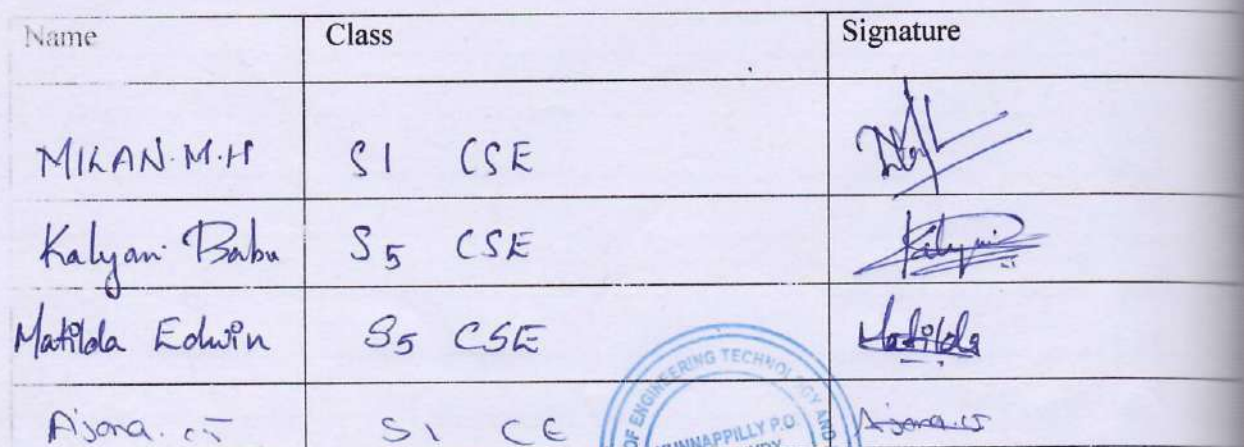 Name Class Signature
MILAN.M.H S1 CSE
Kalyani Babu S5 CSE Kalyani
Matilda Edwin S5 CSE Matilda
S1 CE
OF ENGINEERING TECHNOLOGY AND
UNNAPPILLY P.O.